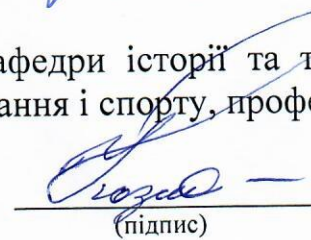 афедри історії та т
ання і спорту, профе
(підпис)